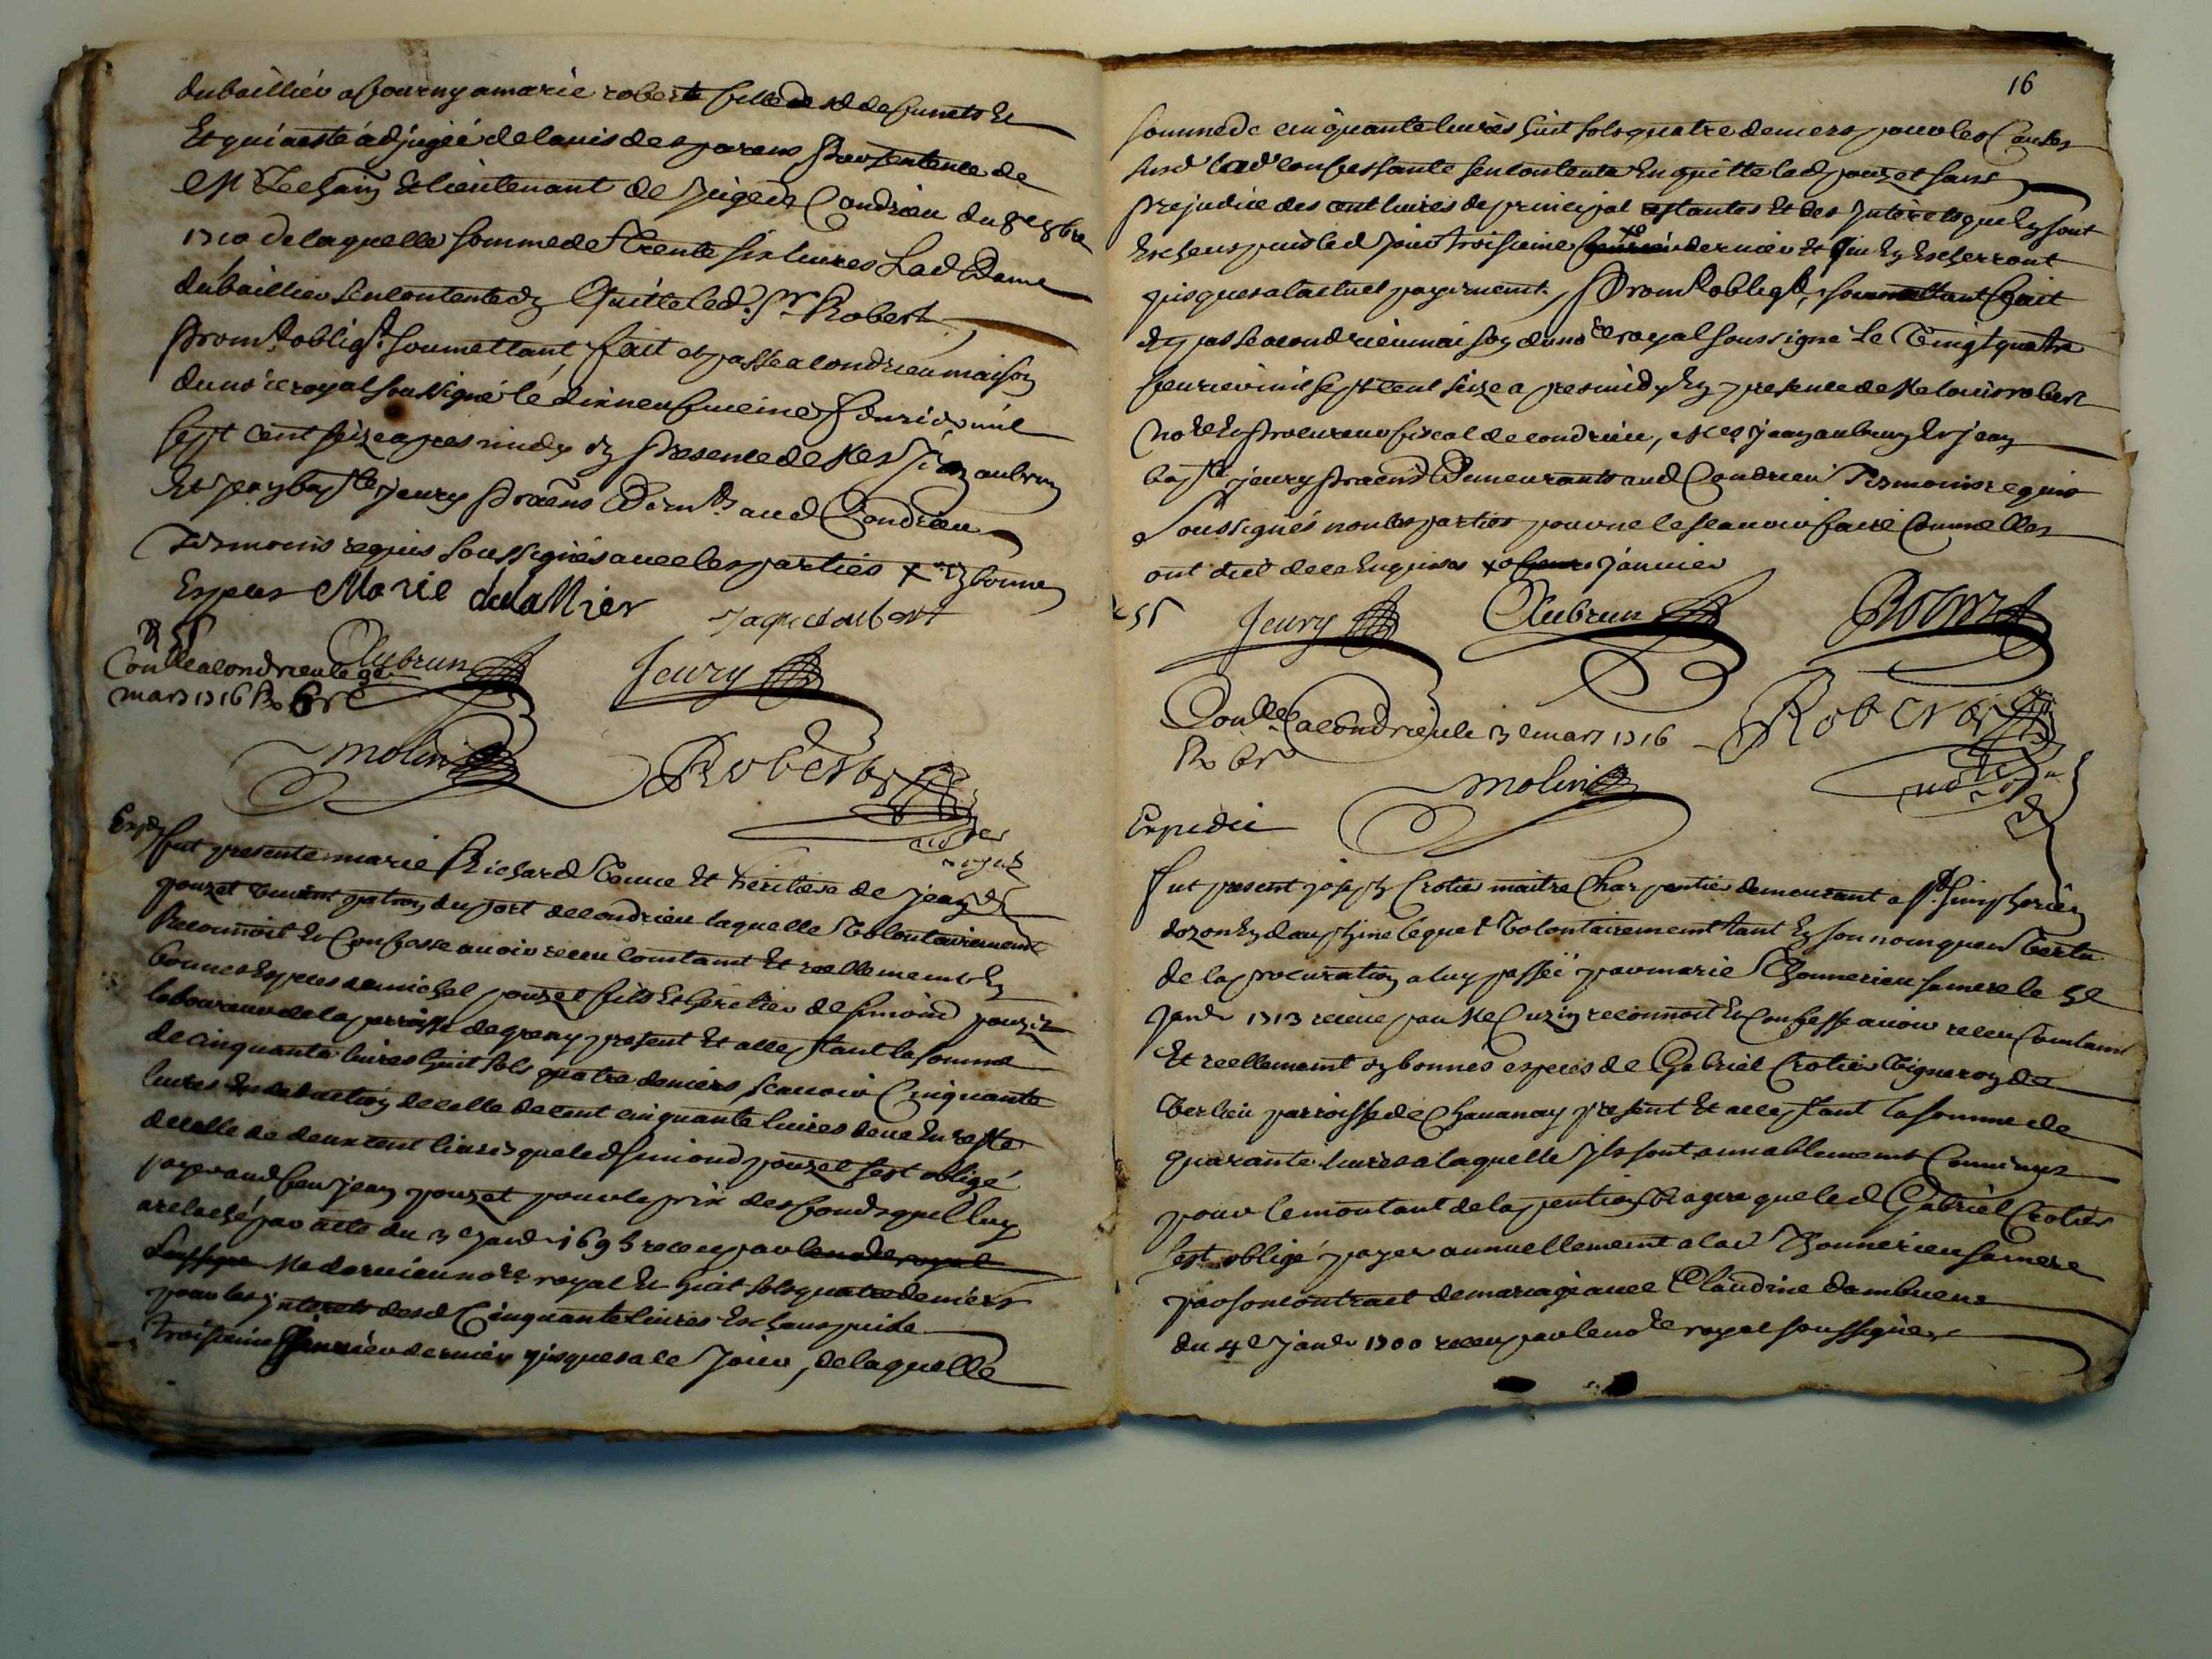 dubaillier a fourny a marie robert fille de sd defunets Et
Et qui aesté adjugée de lauis des parens par sentence de
Mr Lechain Et lieutenant de juge de Condrieu du
1710 de laquelle somme de trente six liures Lad Dame
dubaillier sen contente Quitte led. Sr Robert
prom. oblig. soumettant, fait et passé a condrieu maison
du nore royal soussigné le dixneufuieme feurier mil
sept cent seize apres midy en presence de Mes Jean aubrun
Et jean bapte jeury praëns Demts aud Condrieu
Tesmoins requis soussignés auec les parties x en bonnes
Especes Marie dubaillier jaque robert
Aubrun Jeury
Conllé a condrieu le 9e
mars 1716 Ro
molin Robert
nore royal
Exp
fut presente marie Richard veuue Et heritiere de jean
pouzet viuant patron du port de condrieu laquelle volontairement
Reconnoit Et Confesse auoir receu comtant Et reellement En
bonnes Especes de michel pouzet fils Et heritier de simond pouzet
laboureur de la parroisse de present Et acceptant la somme
de cinquante liures huit sols quatre deniers scauoir Cinquante
liures En deduction de celle de cent cinquante liures deue En reste
de celle de deux cent liures que led simond pouzet sest obligé
payer aud feu jean pouzet pour le prix des fonds quil luy
a relaché par acte du 3e janr 1695 receu par le nore royal
soussigné Me nore royal Et huit sols quatre deniers
pour les jnterets desd Cinquante liures Escheus puis le
troisieme januier dernier jusques a ce jour, de laquelle
16
somme de cinquante liures huit sols quatre deniers pour les Causes
susd lad confessante sen contente En quitte led pouzet sans
prejudice des cent liures de principal restantes Et des jnterets quen sont
Escheus puis led jour troisieme feurier dernier Et quen Escherront
jusques a lactuel payement, prom. oblig. soumettant fait
Et passé a condrieu maison du nore royal soussigné le vingt quatre
feurier mil sept cent seize apres midy En presence de Me louis robert
nore Et procureur fiscal de condrieu, Mes jean aubrun Et jean
bapte jeury praëns Demeurants aud Condrieu Tesmoins requis
Soussignés non les parties pour ne le scauoir faire comme elles
ont dict de ce Enquises x januier
Jeury Aubrun Robert
Conllé a condrieu le 3e mars 1716 Robert
Ro nore royal
molin
Expedié
fut present joseph Crotier maitre Charpentier demeurant a st simphorien
dozon En dauphiné lequel volontairement tant En son nom quen vertu
de la procuration a luy passée par marie Thonnerieu sa mere le 5e
janr 1713 receue par Me Cuzin reconnoit Et Confesse auoir receu Comtant
Et reellement en bonnes especes de Gabriel Crotier vigneron de
Verlieu parroisse de Chauanay present Et acceptant la somme de
quarante liures a laquelle jls sont amiablement Conuenus
pour le montant de la pention viagere que led Gabriel Crotier
sest obligé payer annuellement a lad Thonnerieu sa mere
par son contract de mariage auec Claudine dambuent
du 4e janr 1700 receu par le nore royal soussigné